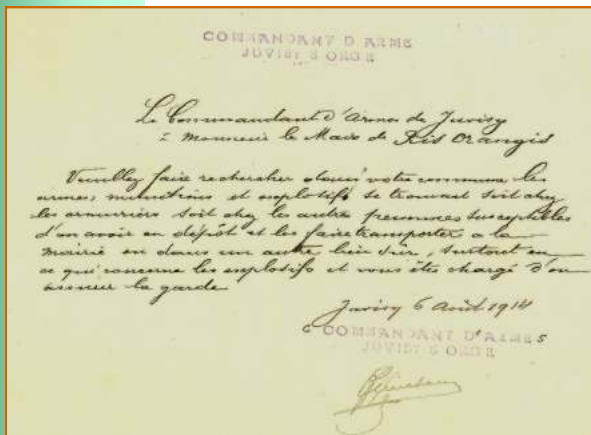 COMMANDANT D ARME
JUVISY S ORGE
Le Commandant d'Armes de Juvisy
à Monsieur le Maire de Ris Orangis
Veuillez faire rechercher dans votre commune les
armes, munitions et explosifs se trouvant soit chez
les armuriers soit chez les autres personnes susceptibles
d'en avoir en dépôt et les faire transporter a la
mairie ou dans un autre lieu sûr, surtout en
ce qui concerne les explosifs et vous êtes chargé d'en
assurer la garde
Juvisy 6 Août 1914
COMMANDANT D'ARMES
JUVISY S ORGE